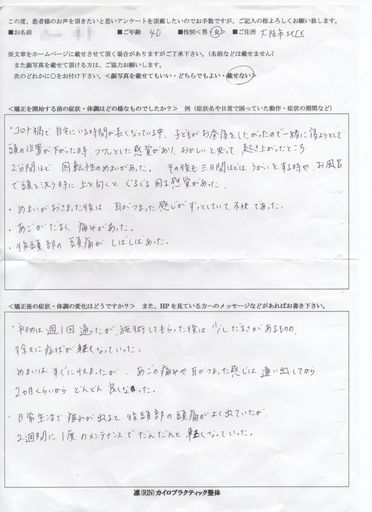 この度、患者様のお声を頂きたいと思いアンケートを頂戴したいのでお手数ですが、ご記入の程よろしくお願い致します。
■お名前 ■ご年齢 40 ■性別< 男 ・ 女 > ■ご住所 大阪市北区
※文章をホームページに載せさせて頂く場合がありますがご了承下さい。(名前などは載せません)
また顔写真を載せて頂ける方は、ご協力お願いします。
次のどれかに○をお付け下さい。<顔写真を載せてもいい・どちらでもよい・載せない>
<矯正を開始する前の症状・体調はどの様なものでしたか?> 例(症状名や日常で困っていた動作・症状の期間など)
・コロナ禍で自宅にいる時間が長くなっている中、子どもがお昼寝をしたがったので一緒に寝ようとして
頭の位置が下がった時、フワッとした感覚があり、おかしいと思って起き上がったところ
2分間ほど 回転性のめまいがあった。その後も三日間ほどは うがいをする時や お風呂
で頭を洗う時に上を向くと ぐるぐる回る感覚があった。
・めまいがおさまった後は、耳がつまった感じがずっとしていて不快であった。
・あごがだるく 痛みがあった。
・後頭部の頭痛がしばしばあった。
<矯正後の症状・体調の変化はどうですか?> また、HPを見ている方へのメッセージなどがあればお書き下さい。
・初めは週1回通ったが 施術してもらった後は 少しだるさがあるものの、
徐々に症状が軽くなっていった。
めまいはすぐに収まったが、あごの痛みや耳がつまった感じは 通い出してから
2ヵ月くらいから どんどん良くなった。
・日常生活で疲れが出ると 後頭部の頭痛がよく出ていたが、
2週間に1度のメンテナンスでだんだんと軽くなっていった。
凛(RIN)カイロプラクティック整体